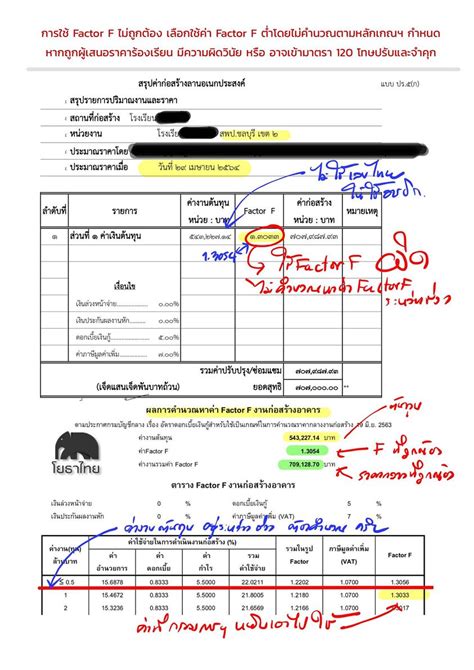 การใช้ Factor F ไม่ถูกต้อง เลือกใช้ค่า Factor F ต่ำโดยไม่คำนวณตามหลักเกณฑ์ฯ กำหนด
หากถูกผู้เสนอราคาร้องเรียน มีความผิดวินัย หรือ อาจเข้ามาตรา 120 โทษปรับและจำคุก
สรุปค่าก่อสร้างลานอเนกประสงค์
แบบ ปร.๕(ก)
: สรุปรายการปริมาณงานและราคา
: สถานที่ก่อสร้าง โรงเรียน
: หน่วยงาน โรงเรีย สพป.ชลบุรี เขต ๒
: ประมาณราคาโดย
: ประมาณราคาเมื่อ วันที่ ๒๙ เมษายน ๒๕๖๔
ไม่ใช้เลขไทย
ให้ใช้
ลำดับที่ รายการ ค่างานต้นทุน หน่วย : บาท Factor F ค่าก่อสร้าง หน่วย : บาท หมายเหตุ
๑ ส่วนที่ ๑ ค่าเงินต้นทุน ๕๔๓,๒๒๗.๑๔ ๑.๓๐๓๓ ๗๐๗,๙๘๗.๙๓
1.3054
ใช้ Factor F ผิด
ไม่คำนวณหาค่า Factor F
ระหว่างช่วง
เงื่อนไข
เงินล่วงหน้าจ่าย ๐.๐๐%
เงินประกันผลงานหัก ๐.๐๐%
ดอกเบี้ยเงินกู้ ๕.๐๐%
ค่าภาษีมูลค่าเพิ่ม ๗.๐๐%
รวมค่าปรับปรุง/ซ่อมแซม ๗๐๗,๙๘๗.๙๓
(เจ็ดแสนเจ็ดพันบาทถ้วน) ยอดสุทธิ ๗๐๗,๐๐๐.๐๐ **
ผลการคำนวณหาค่า Factor F งานก่อสร้างอาคาร
ต้นทุน
ตามประกาศกรมบัญชีกลาง เรื่อง อัตราดอกเบี้ยเงินกู้สำหรับใช้เป็นเกณฑ์ในการคำนวณราคากลางงานก่อสร้าง 19 มิย. 2563
ค่างานต้นทุน 543,227.14 บาท
ค่าFactor F 1.3054
F ที่ถูกต้อง
ค่างานรวมค่า Factor F 709,128.70 บาท
ราคากลางที่ถูกต้อง
โยธาไทย
ตาราง Factor F งานก่อสร้างอาคาร
เงินล่วงหน้าจ่าย 0 % ดอกเบี้ยเงินกู้ 5 %
เงินประกันผลงานหัก 0 % ค่าภาษีมูลค่าเพิ่ม (VAT) 7 %
ค่างานต้นทุน อยู่ระหว่างช่วง ต้องคำนวณ ครับ
ค่างาน(ทุน) ล้านบาท ค่าใช้จ่ายในการดำเนินงานก่อสร้าง (%) รวมในรูป Factor ภาษีมูลค่าเพิ่ม (VAT) Factor F
ค่าอำนวยการ ค่าดอกเบี้ย ค่ากำไร รวมค่าใช้จ่าย
≤ 0.5 15.6878 0.8333 5.5000 22.0211 1.2202 1.0700 1.3056
1 15.4672 0.8333 5.5000 21.8005 1.2180 1.0700 1.3033
2 15.3236 0.8333 5.5000 21.6569 1.2166 1.0700